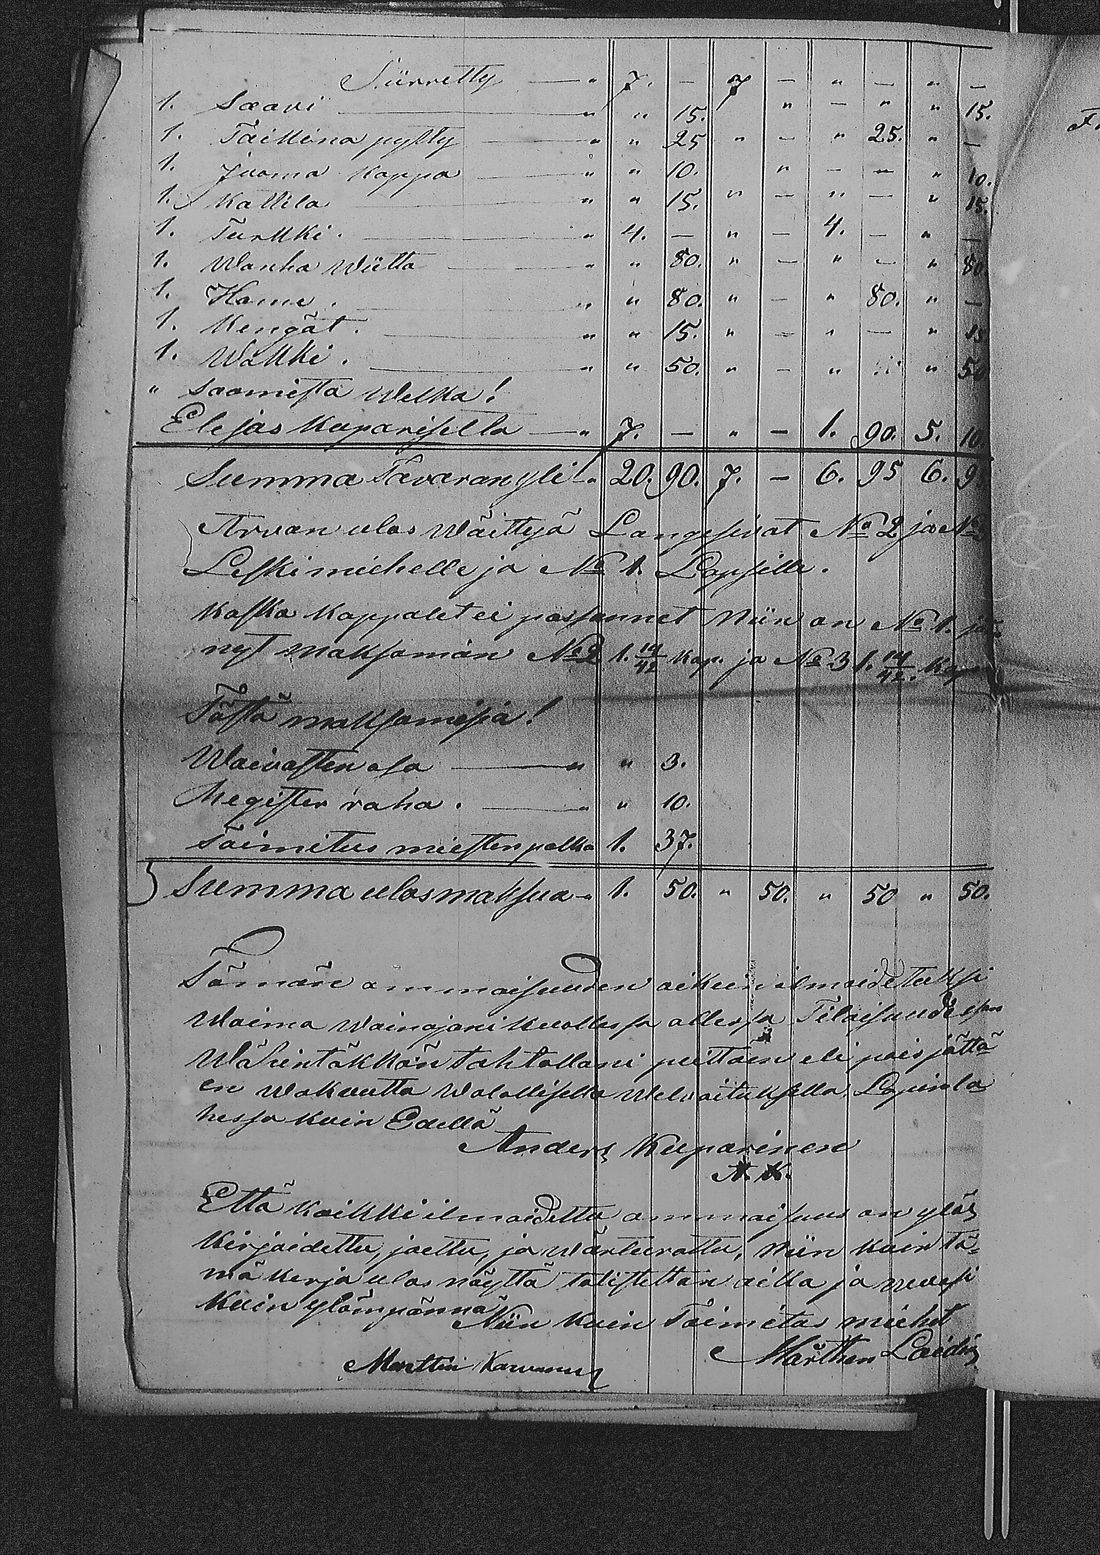 Siirretty — " 7. — 7 — " — " —
1. Saavi — " " 15. " — " " 15.
1. Taikina pytty — " " 25 " — " 25. " —
1. Juoma kappa — " " 10. " — — " 10.
1. Kattila — " " 15. " — " — " 15.
1. Turkki. — " 4. — " — 4. — " —
1. Wanha Wiitta — " " 80. " — " — " 80
1. Hame. — " " 80. " — " 80. " —
1. Kengät. — " " 15. " — " — " 15
1. Wakki. — " " 50. " — " " 50
" Saamista Welka!
Elias Kuparisella — " 7. — " — 1. 90. 5. 10
Summa Tavaran yli " 20. 90. 7. — 6. 95 6. 9
Arvan ulos Wäittyä Langesivat No 2 ja No
Leskimiehelle ja No 1. Lapsille.
Koska Kappalet ei passannet Niin on No 1. jää-
nyt maksaman No 2 1. 14/42 kop. ja No 3 1. 14/42. kop
Tästä maksamisia!
Waivasten osa — " " 3.
Registер raha. — " " 10.
Toimitus miesten palkka 1. 37.
Summa ulosmaksua " 1. 50. " 50. " 50 " 50.
Tämän ommaisuuden oikein ilmoidetuksi
Waima Wainajani kuollessa ollessa Tilaisuudesan
Wähintäkkän tahtollani peittäen eli pois jättä
en Wakuutta Walallisella Welvoituksella, Lapinla
hessa kuin Edellä
Anders Kuparinen
A. K.
Että kaikki ilmoidettu ommaisuus on ylös
Kirjoidettu, jaettu, ja wärteerattu, Niin kuin tä-
mä kirja ulos näyttä todistettan aika ja wuosi
kuin ylämpännä
Niin kuin Toimitus miehet
Marttin Karvanen
Mårthen